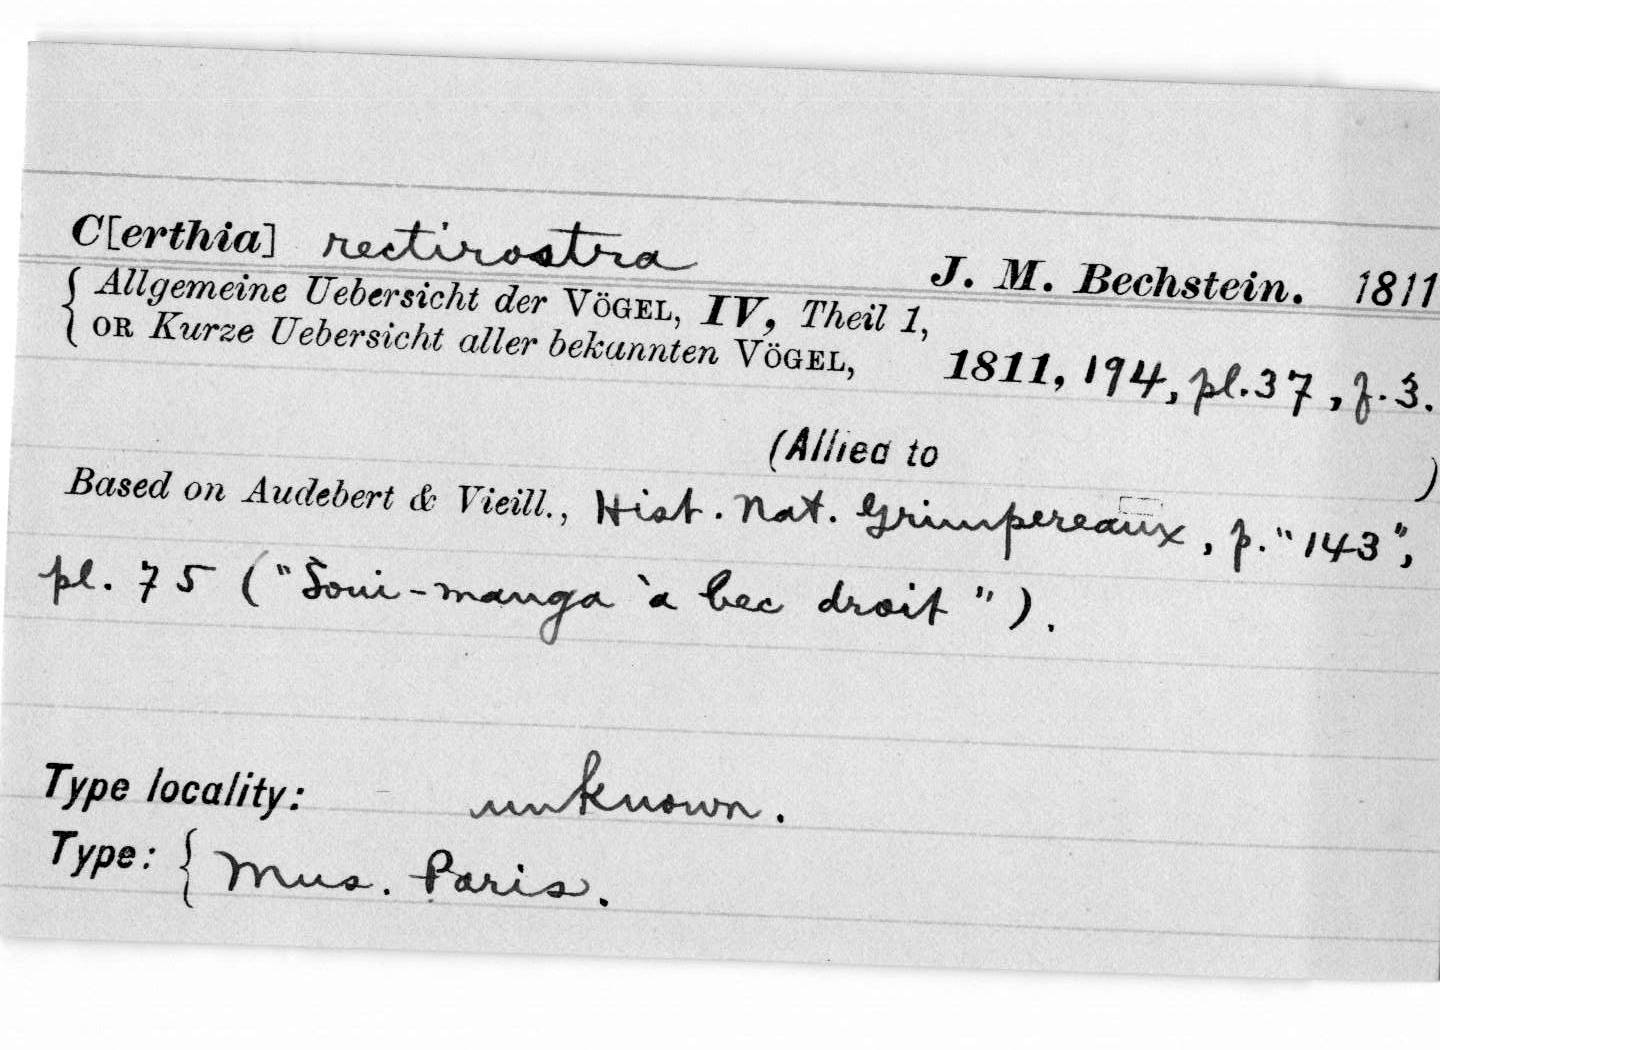 C[erthia] rectirostra J. M. Bechstein. 1811
Allgemeine Uebersicht der VÖGEL, IV, Theil 1,
OR Kurze Uebersicht aller bekannten VÖGEL, 1811, 194, pl. 37, f. 3.
(Allied to )
Based on Audebert & Vieill., Hist. Nat. Grimpereaux, p. "143",
pl. 75 ("Soui-manga à bec droit").
Type locality: unknown.
Type: { Mus. Paris.